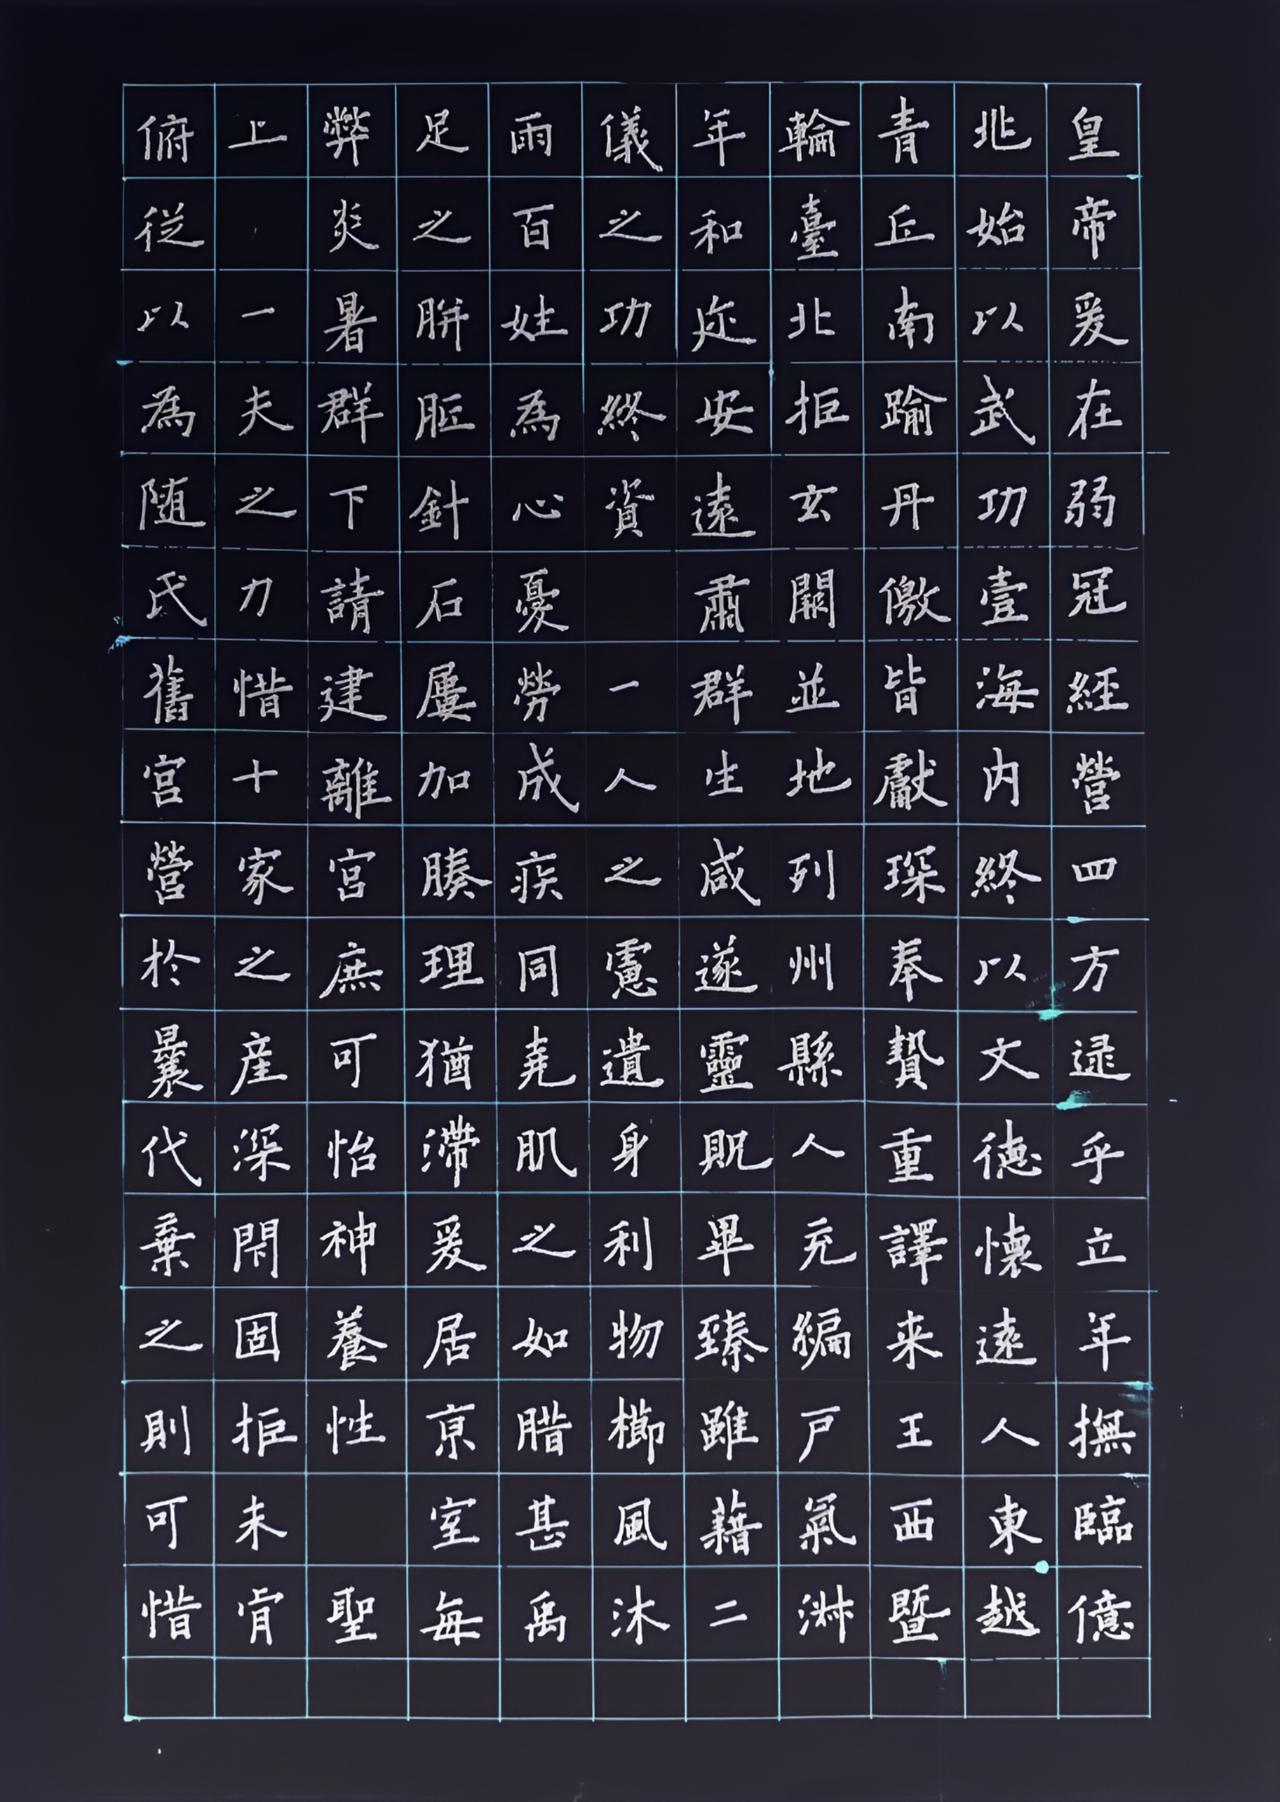 皇帝爰在弱冠經營四方逮乎立年撫臨億
兆始以武功壹海内終以文德懷遠人東越
青丘南踰丹徼皆獻琛奉贄重譯来王西暨
輪臺北拒玄闕並地列州縣人充編戸氣淑
年和迩安遠肅群生咸遂靈貺畢臻雖藉二
儀之功終資 一人之慮遺身利物櫛風沐
雨百姓為心憂勞成疾同堯肌之如腊甚禹
足之胼胝針石屢加腠理猶滯爰居京室每
弊炎暑群下請建離宮庶可怡神養性 聖
上 一夫之力惜十家之産深閇固拒未肯
俯從以為随氏舊宮營於曩代棄之則可惜